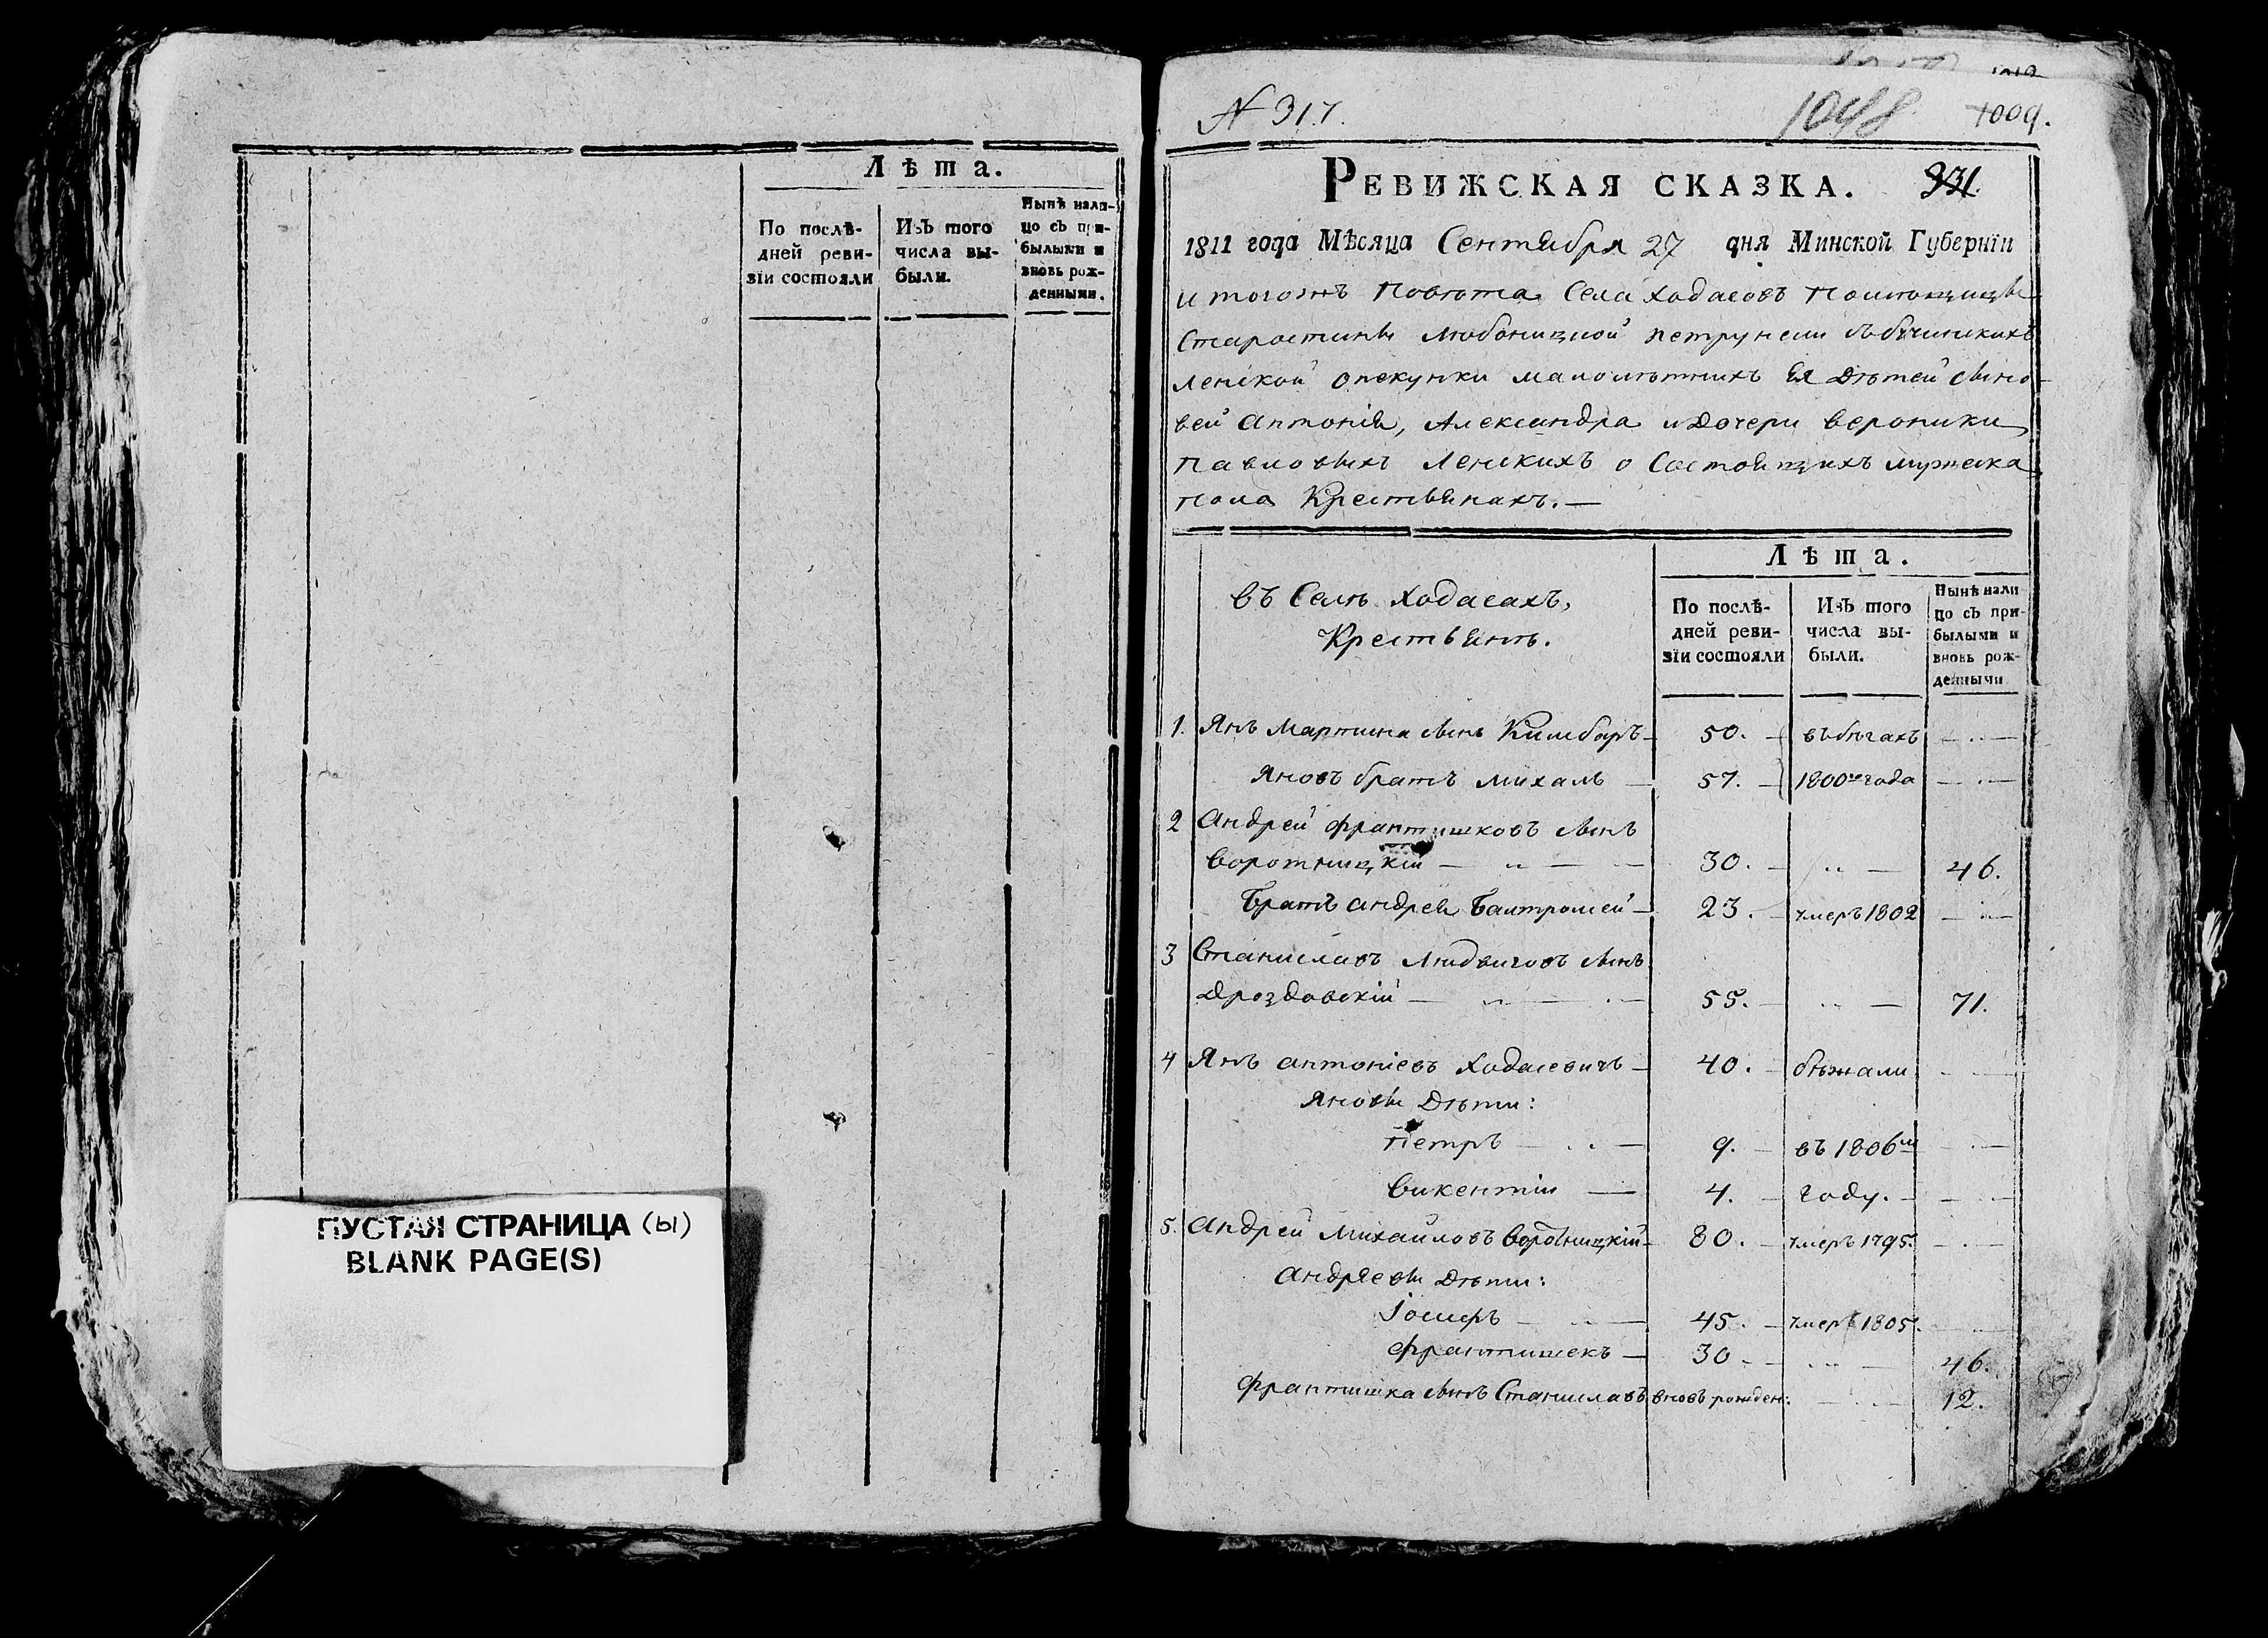 Лѣта.
По послѣ-
дней реви-
зіи состояли
Изъ того
числа вы-
были.
Нынѣ нали-
цо съ при-
былыми и
вновь рож-
денными.
ПУСТАЯ СТРАНИЦА (ы)
BLANK PAGE(S)
N 317.
1048
1009.
РЕВИЖСКАЯ СКАЗКА.
331.
1811 года Мѣсяца Сентября 27 дня Минской Губерніи
и тогожъ Повѣта Села Ходасовъ Помѣщицы
Старостины Любоницкой Петрунели
Ленской Опекунки малолѣтнихъ Ея Дѣтей сыно-
вей Антонія, Александра и Дочери Вероники
Павловыхъ Ленскихъ о Состоящихъ мужеска
пола Крестьянахъ.—
Въ Селѣ Ходасахъ,
Крестьянъ.
Лѣта.
По послѣ-
дней реви-
зіи состояли
Изъ того
числа вы-
были.
Нынѣ нали
цо съ при-
былыми и
вновь рож-
денными
1. Янъ Мартина сынъ Кимбаръ — 50. — въ бѣгахъ — . —
Яновъ братъ Михалъ — 57. — 1800го года — . —
2 Андрей Франтишковъ сынъ
Воротницкій — 30. — 46.
Братъ Андрея Балтромей — 23. — умеръ 1802 — . —
3 Станиславъ Людвиговъ сынъ
Дроздовскій — 55. — 71.
4 Янъ Антоніевъ Ходасевичъ — 40. — бѣжали
Яновы Дѣти:
Петръ — 9. — въ 1806м — . —
Викентіи — 4. — году. —
5. Андрей Михайловъ Воротницкій — 80. — умеръ 1795. — . —
Андреевы Дѣти:
Іозефъ — 45. — умеръ 1805.
Франтишекъ — 30 — 46.
Франтишка сынъ Станиславъ вновь рожден: — 12.